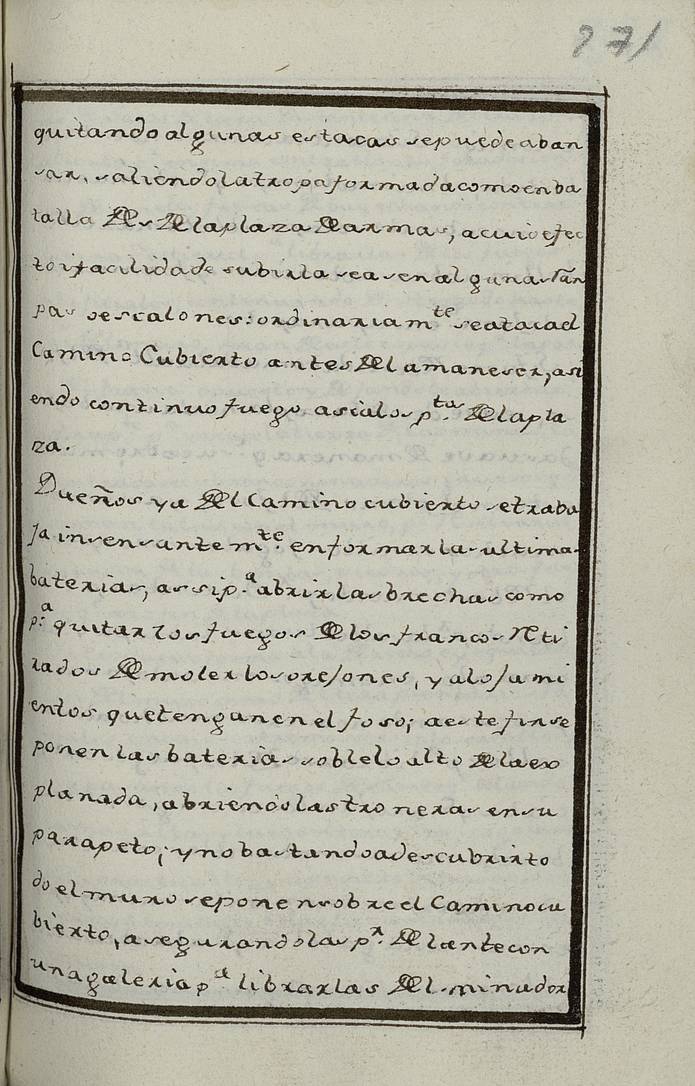 271
quitando algunas estacas se puede aban
sar, saliendo la tropa formada como en ba
talla Des De la plaza De armas, a cuio efec
to i facilidad de subirla seasen algunas Ran
pas o escalones: ordinariam.te se ataca el
Camino Cubierto antes Del amaneser, asi
endo continuo fuego asia los p.tas De la pla
za.
Dueños ya Del Camino cubierto se traba
ja insensantem.te en formar las ultimas
baterias, assi p.a abrir las brechas como
p.a quitar los fuegos De los francos Reti
rados Demoler los orejones, y alojami
entos que tengan en el foso; a este fin se
ponen las baterias soble lo alto De la ex
planada, abriendo las troneras en su
parapeto; y no bastando a descubrir to
do el muro se ponen sobre el Camino cu
bierto, asegurandolas p.r Delante con
una galeria p.a librarlas Del minador